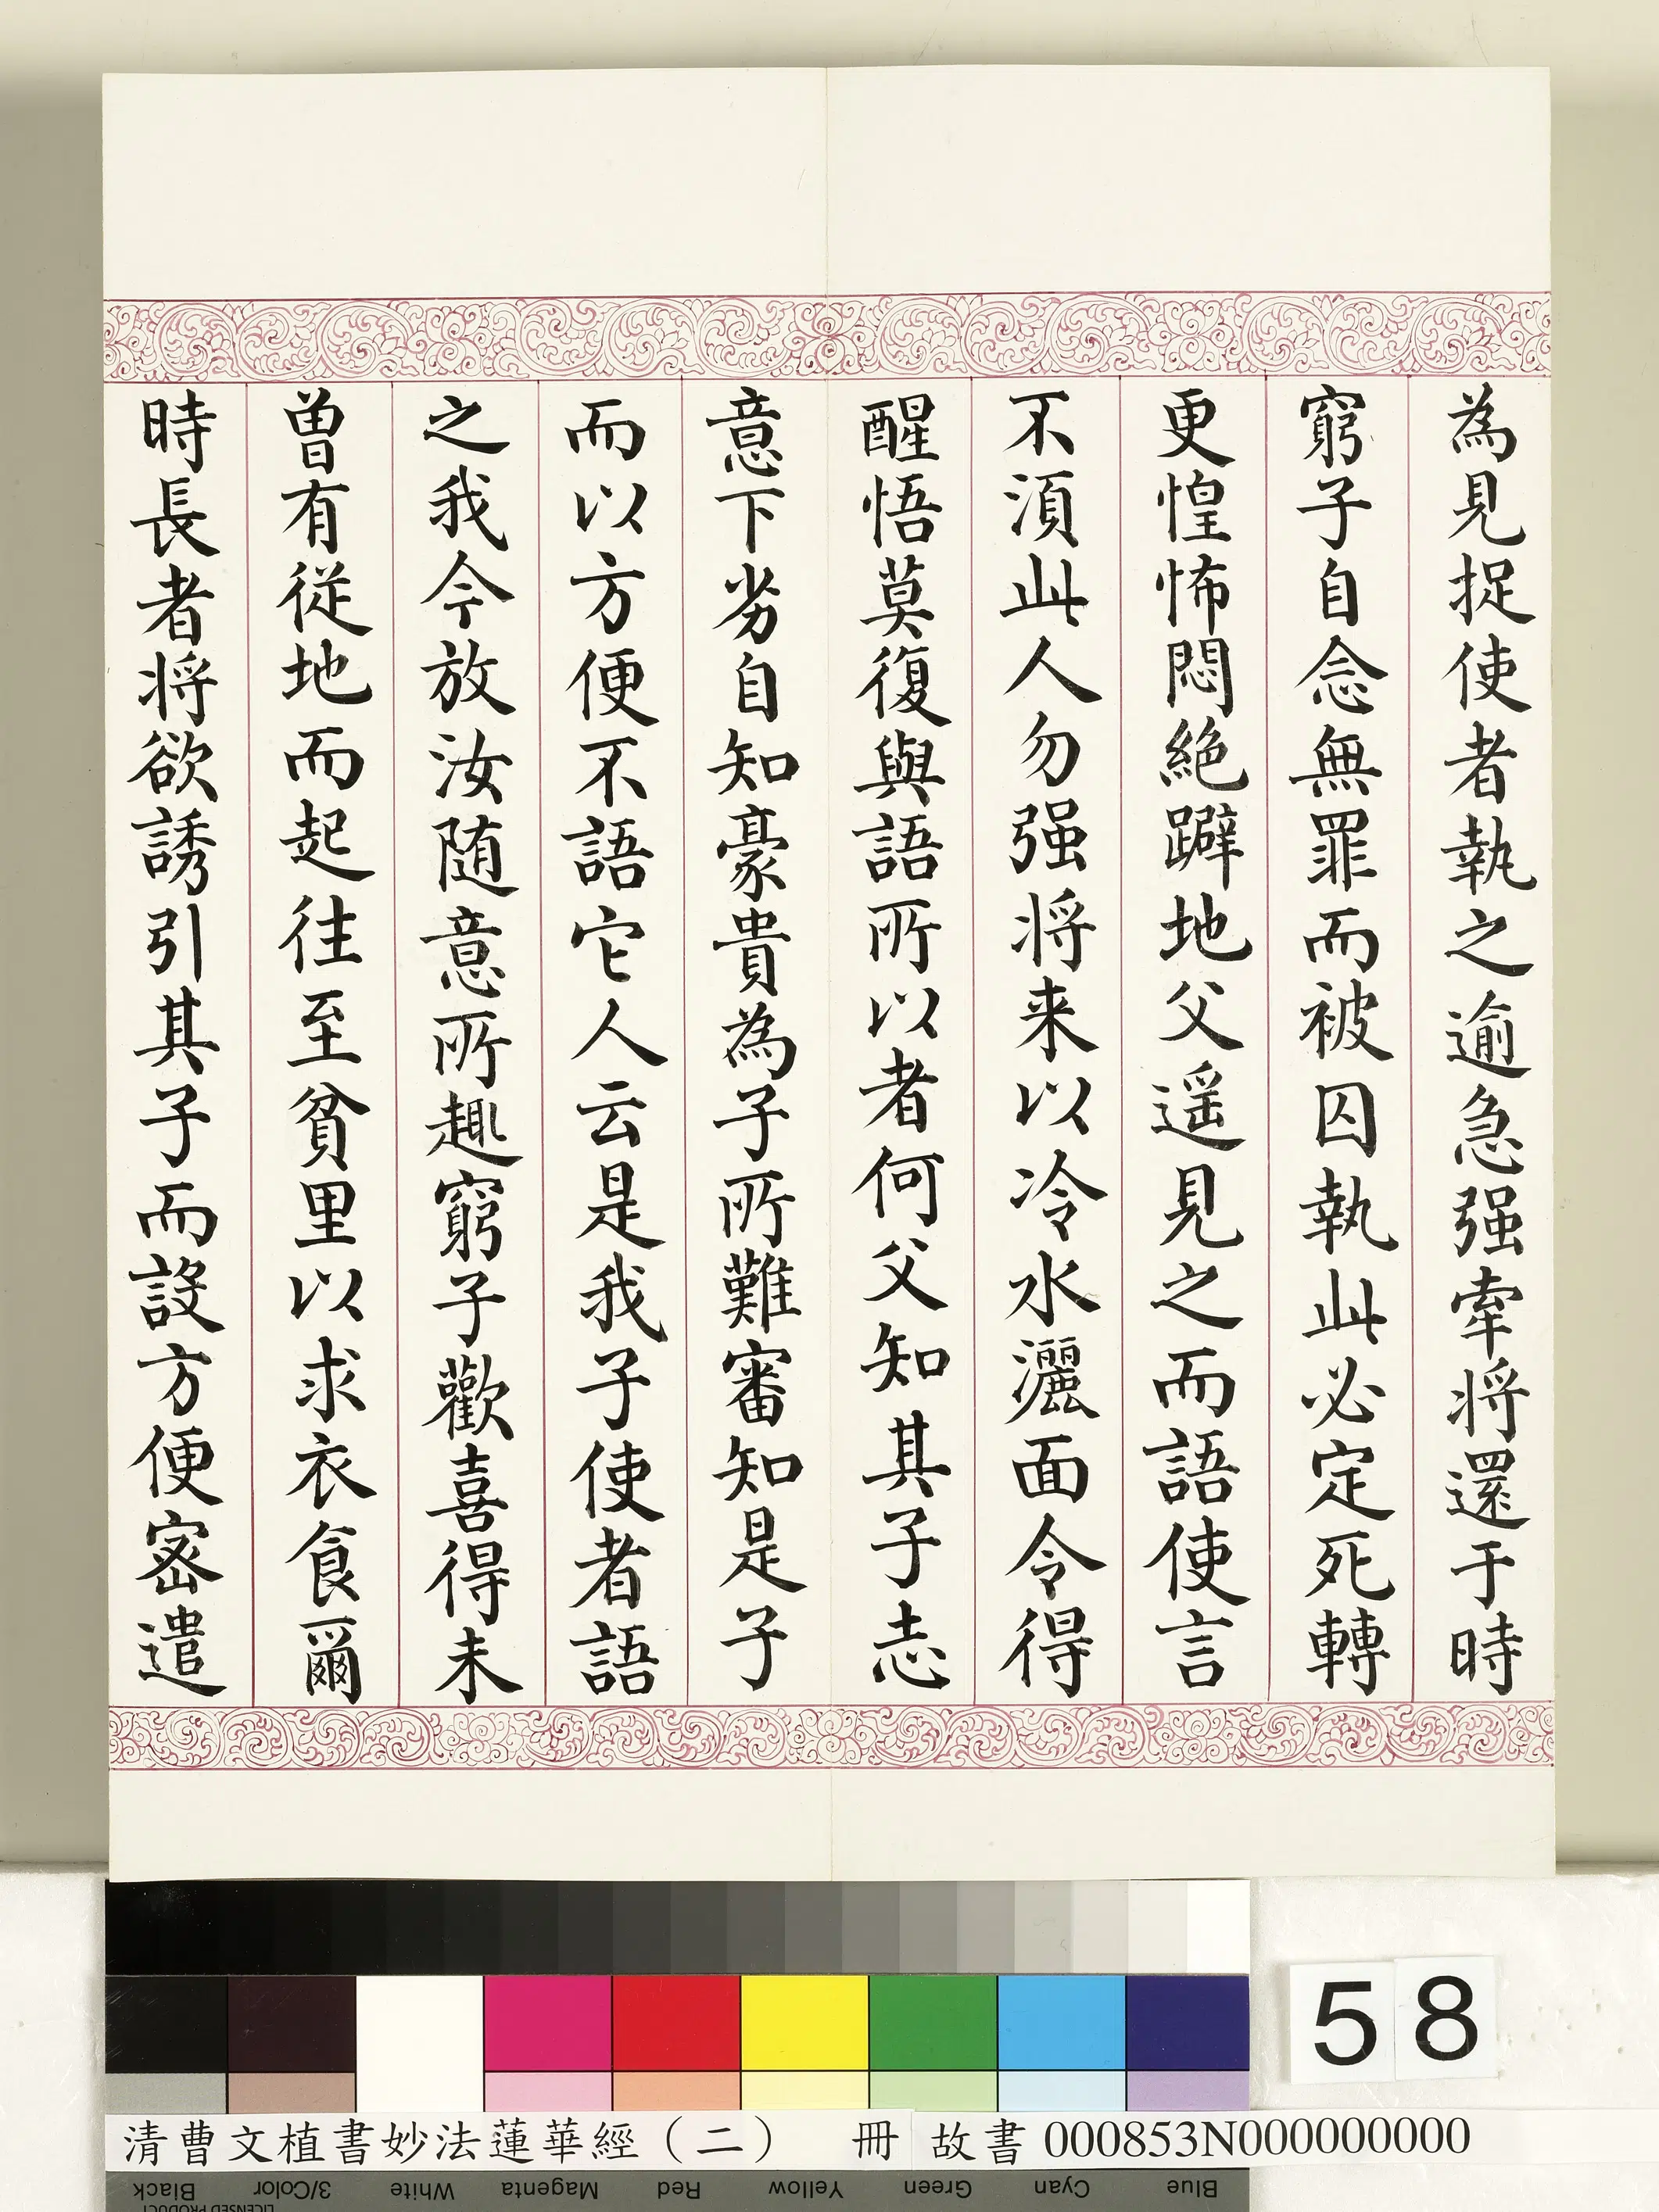 為見捉使者執之逾急强牽將還于時
窮子自念無罪而被囚執此必定死轉
更惶怖悶絕躃地父遥見之而語使言
不湏此人勿强將来以冷水灑面令得
醒悟莫復與語所以者何父知其子志
意下劣自知豪貴為子所難審知是子
而以方便不語它人云是我子使者語
之我今放汝随意所趣窮子歡喜得未
曽有從地而起往至貧里以求衣食爾
時長者將欲誘引其子而設方便密遣
58
清曹文植書妙法蓮華經（二） 冊 故書 000853N000000000
Black 3/Color White Magenta Red Yellow Green Cyan Blue
LICENSED PRODUCT